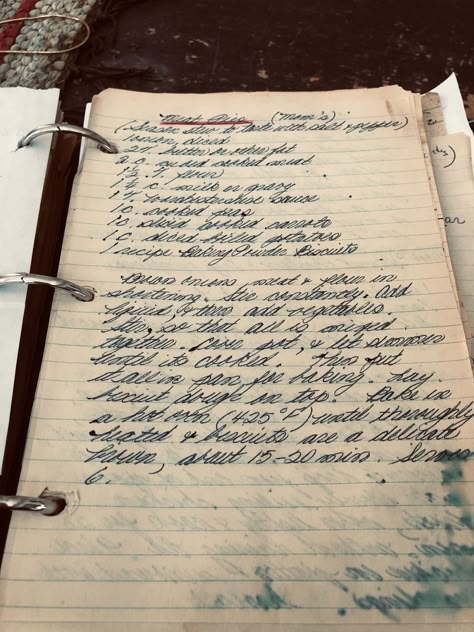 Meat Pie (Mom's)
(Season stew to taste with salt & pepper)
onion, diced
2 T. butter or other fat
2 c. cubed cooked meat
1½ T. flour
1½ c. milk or gravy
1 T. Worcestershire sauce
1 c. cooked peas
1 c. sliced cooked carrots
1 c. diced boiled potatoes
1 recipe Baking Powder Biscuits
Brown onions meat & flour in
shortening. Stir constantly. Add
liquid & then add vegetables.
Stir, so that all is mixed
together. Cover pot, & let simmer
until it's cooked. Then put
it all in pan for baking. Lay
biscuit dough on top. Bake in
a hot oven (425°F) until thoroughly
heated & biscuits are a delicate
brown, about 15-20 min. Serves
6.